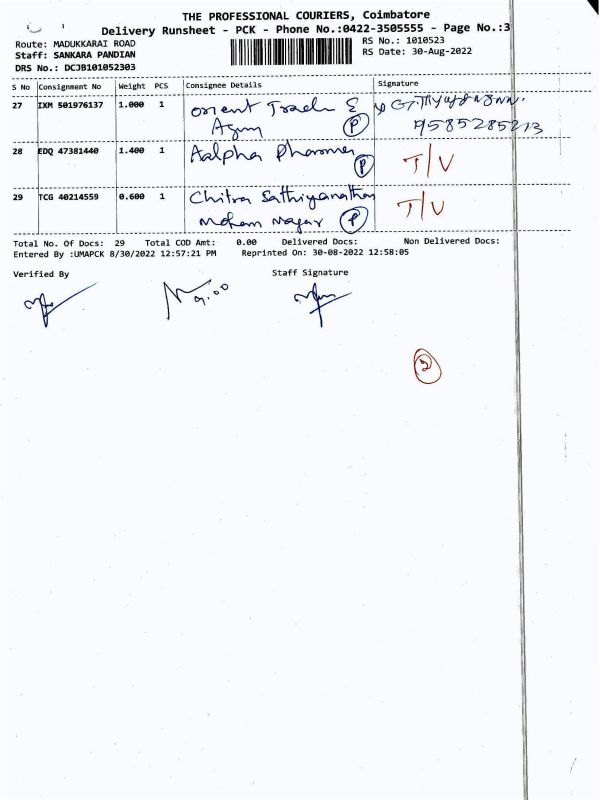 THE PROFESSIONAL COURIERS, Coimbatore
Delivery Runsheet - PCK - Phone No.:0422-3505555 - Page No.:3
Route: MADUKKARAI ROAD
RS No.: 1010523
Staff: SANKARA PANDIAN
RS Date: 30-Aug-2022
DRS No.: DCJB101052303
S No Consignment No Weight PCS Consignee Details Signature
27 IXM 501976137 1.000 1 orient Trade &
Agny P 9585285213
28 EDQ 47381440 1.400 1 Aalpha Pharma P T/V
29 TCG 40214559 0.600 1 Chitra Sathiyanathan T/V
Mohan Nagar P
Total No. Of Docs: 29 Total COD Amt: 0.00 Delivered Docs: Non Delivered Docs:
Entered By :UMAPCK 8/30/2022 12:57:21 PM Reprinted On: 30-08-2022 12:58:05
Verified By Staff Signature
9.00
2